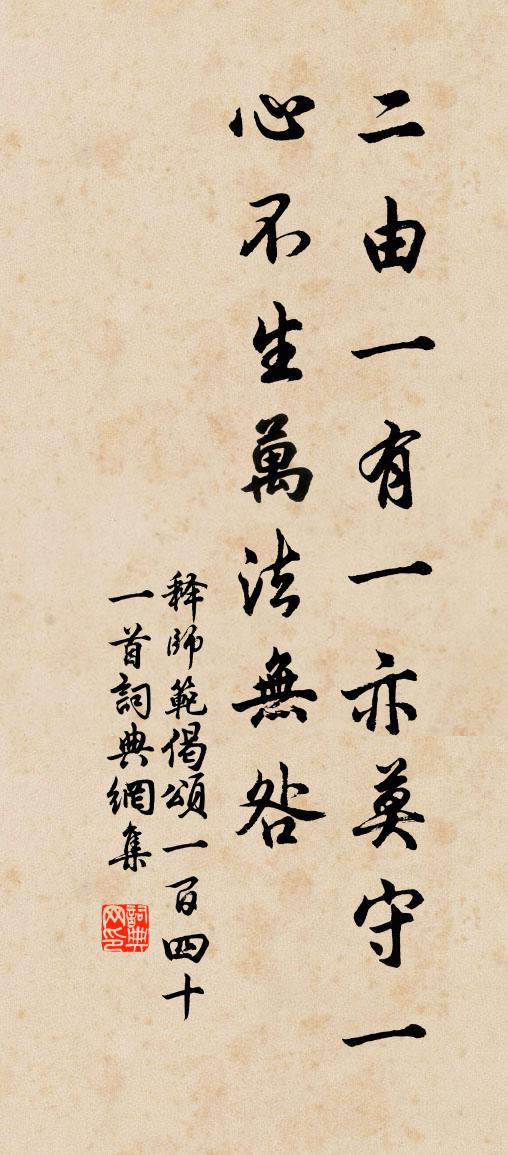 二由一有一亦莫守一
心不生萬法無咎
释師範偈頌一百四十
一首詞典網集
詞典
网印